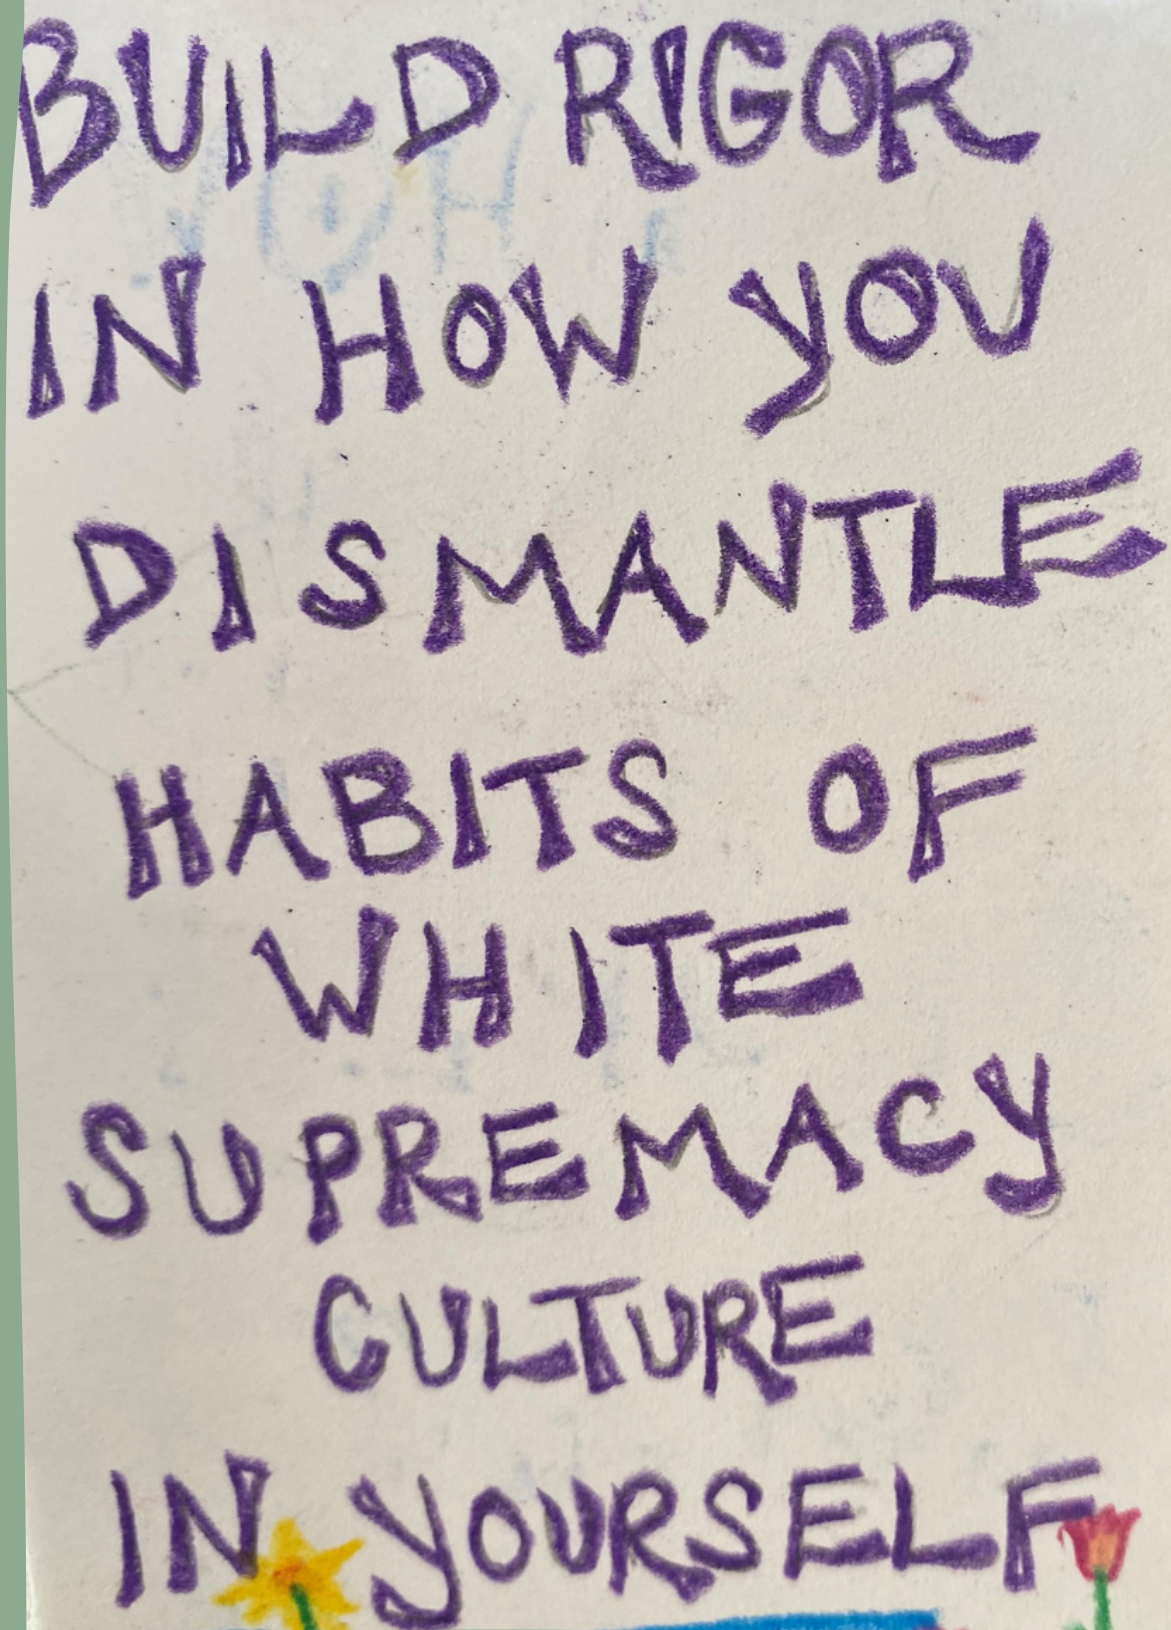 BUILD RIGOR
IN HOW YOU
DISMANTLE
HABITS OF
WHITE
SUPREMACY
CULTURE
IN YOURSELF